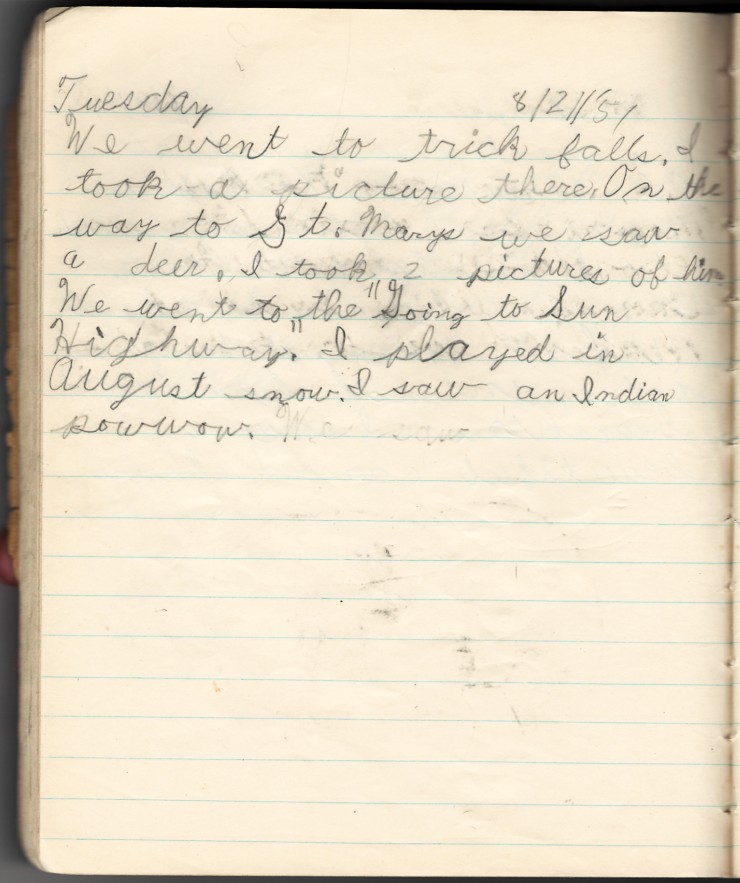 Tuesday 8/21/51
We went to trick falls. I
took a picture there. On the
way to St. Marys we saw
a deer. I took 2 pictures of him
We went to the "Going to Sun
Highway." I played in
August snow. I saw an Indian
powwow. We saw